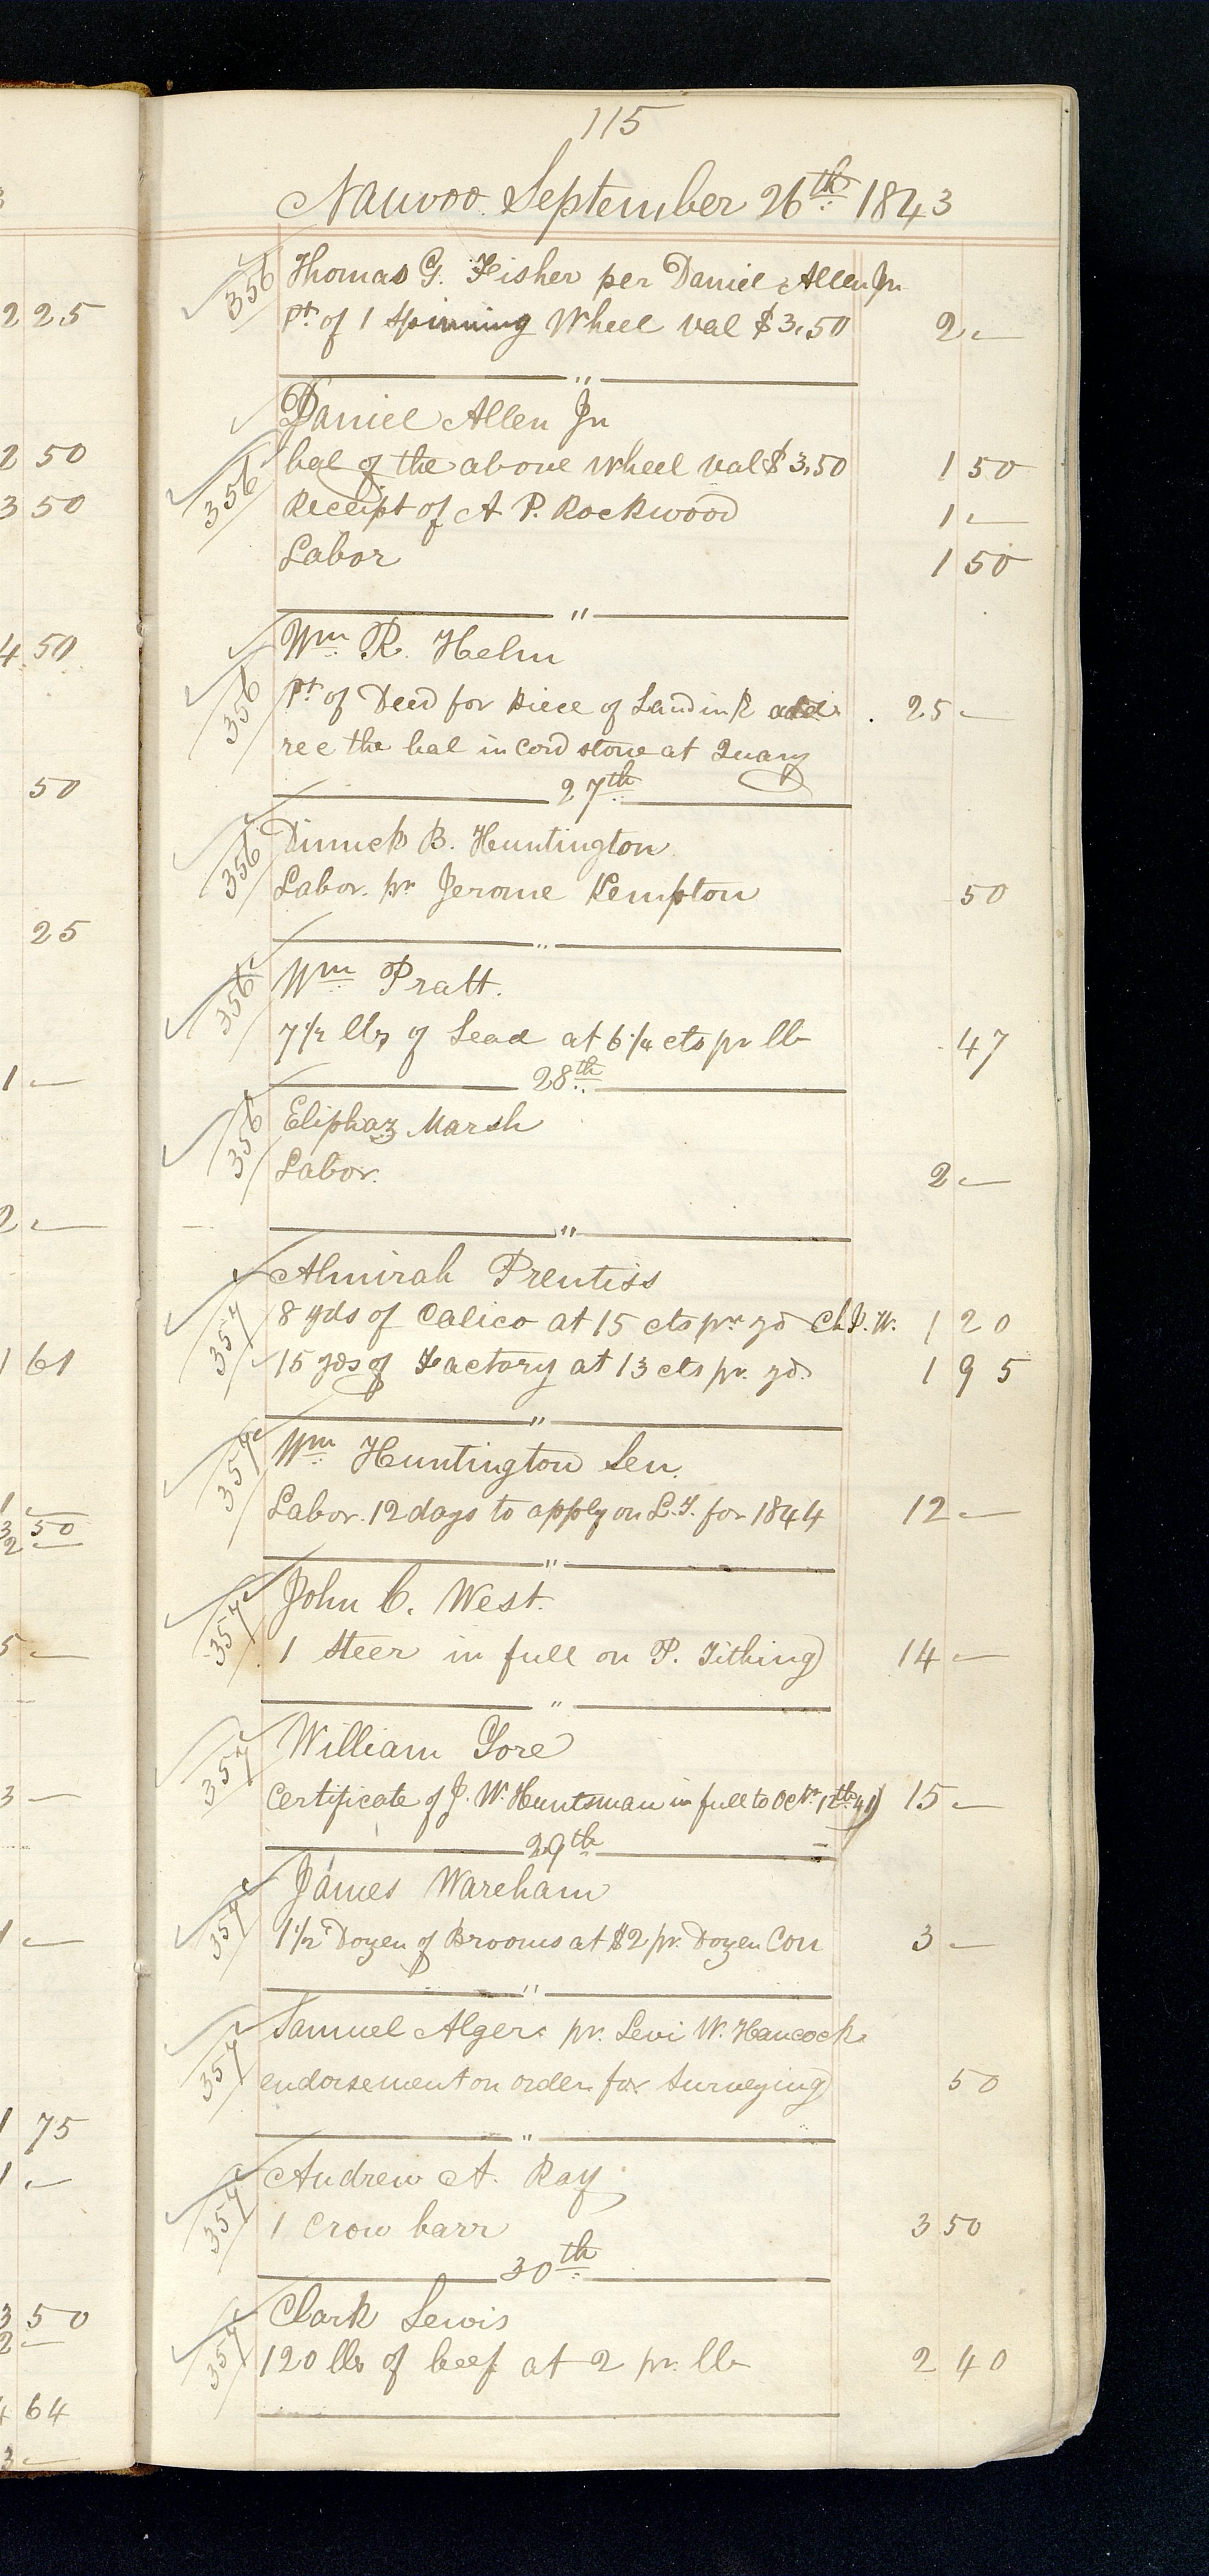 115
Nauvoo September 26th 1843
356 Thomas G. Fisher per Daniel Allen Jn
Pt of 1 Spinning Wheel val $3.50 2 —
"
Daniel Allen Jn
356 bal of the above wheel val $3.50 1 50
Receipt of A P. Rockwood 1 —
Labor 1 50
"
Wm R. Helm
356 Pt of Deed for Piece of Land in K add. 25 —
rec the bal in cord stone at Quary
27th
356 Dimick B. Huntington
Labor. pr Jerome Kempton 50
"
356 Wm Pratt.
7 1/2 lbs of Lead at 6 1/4 cts pr lb 47
28th
356 Eliphaz Marsh
Labor. 2 —
"
Almirah Prentiss
357 8 yds of Calico at 15 cts pr yd Ch. P. W. 1 20
15 yds of Factory at 13 cts pr. yd. 1 95
"
357 Wm Huntington Sen.
Labor. 12 days to apply on L. T. for 1844 12 —
"
357 John C. West.
1 Steer in full on P. Tithing 14 —
"
357 William Gore
Certificate of J. W. Huntsman in full to Octr 12th 41 15 —
29th
James Wareham
357 1 1/2 Dozen of Brooms at $2 pr. Dozen Con 3 —
"
357 Samuel Alger. pr. Levi W. Hancock
endorsement on order for Surveying 50
"
357 Andrew A. Ray
1 Crow barr 3 50
30th
357 Clark Lewis
120 lbs of beef at 2 pr. lb 2 40
2 25
2 50
3 50
4 50
50
25
1 —
2 —
1 61
1 —
3 50
2 —
5 —
3 —
1 —
1 75
1 —
3 50
2 —
4 64
3 —